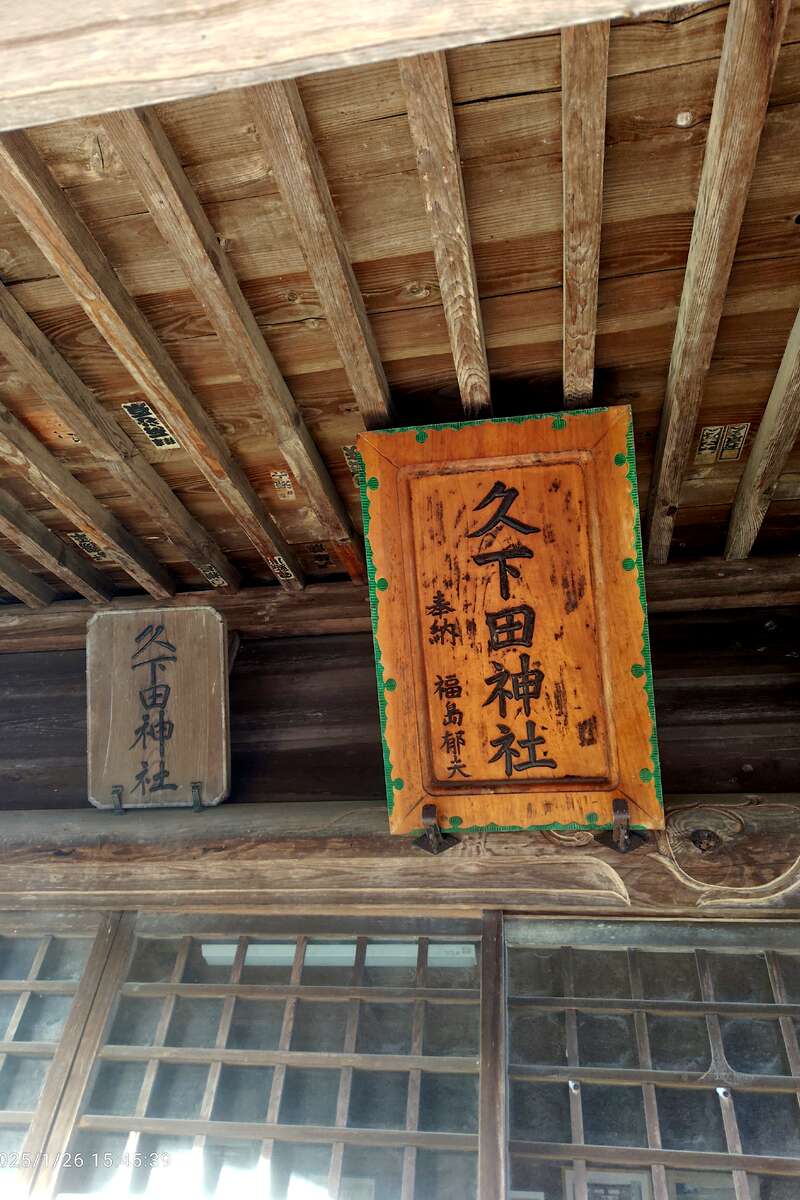 久下田神社
奉納
福島郁夫
久下田神社
025/1/26 15:45:39